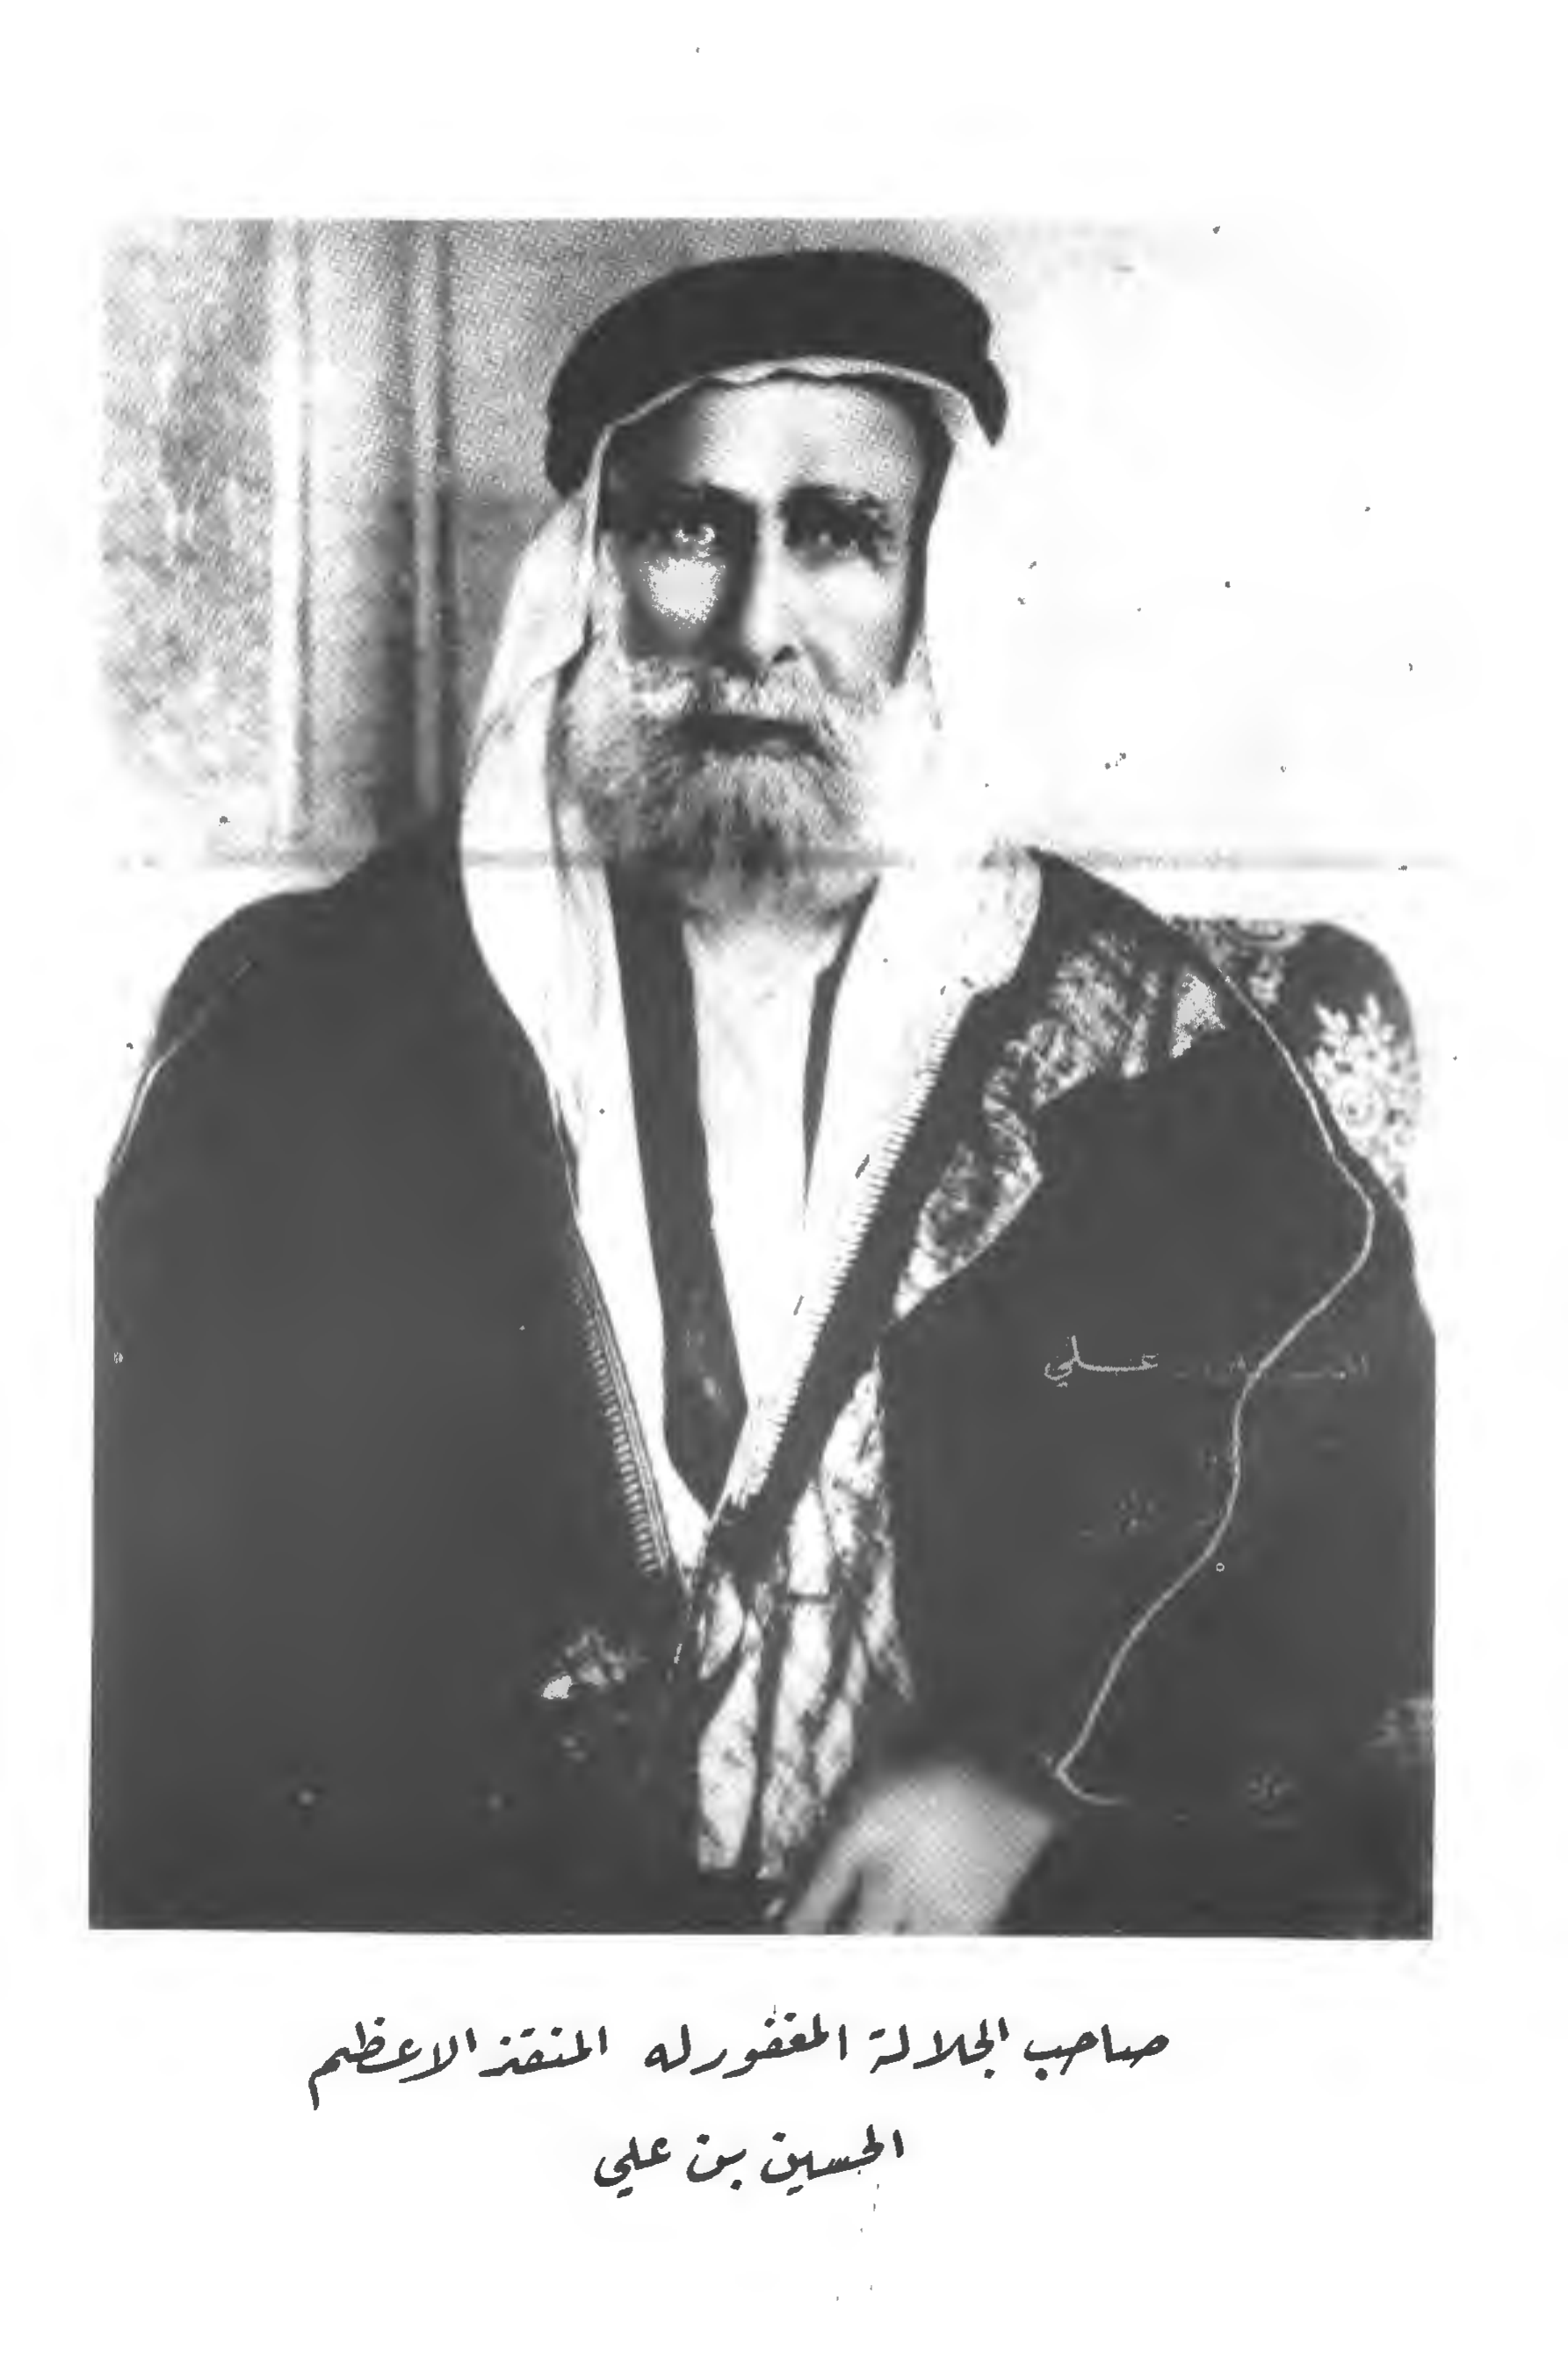 علي
صاحب الجلالة المغفور له المنقذ الاعظم
الحسين بن علي